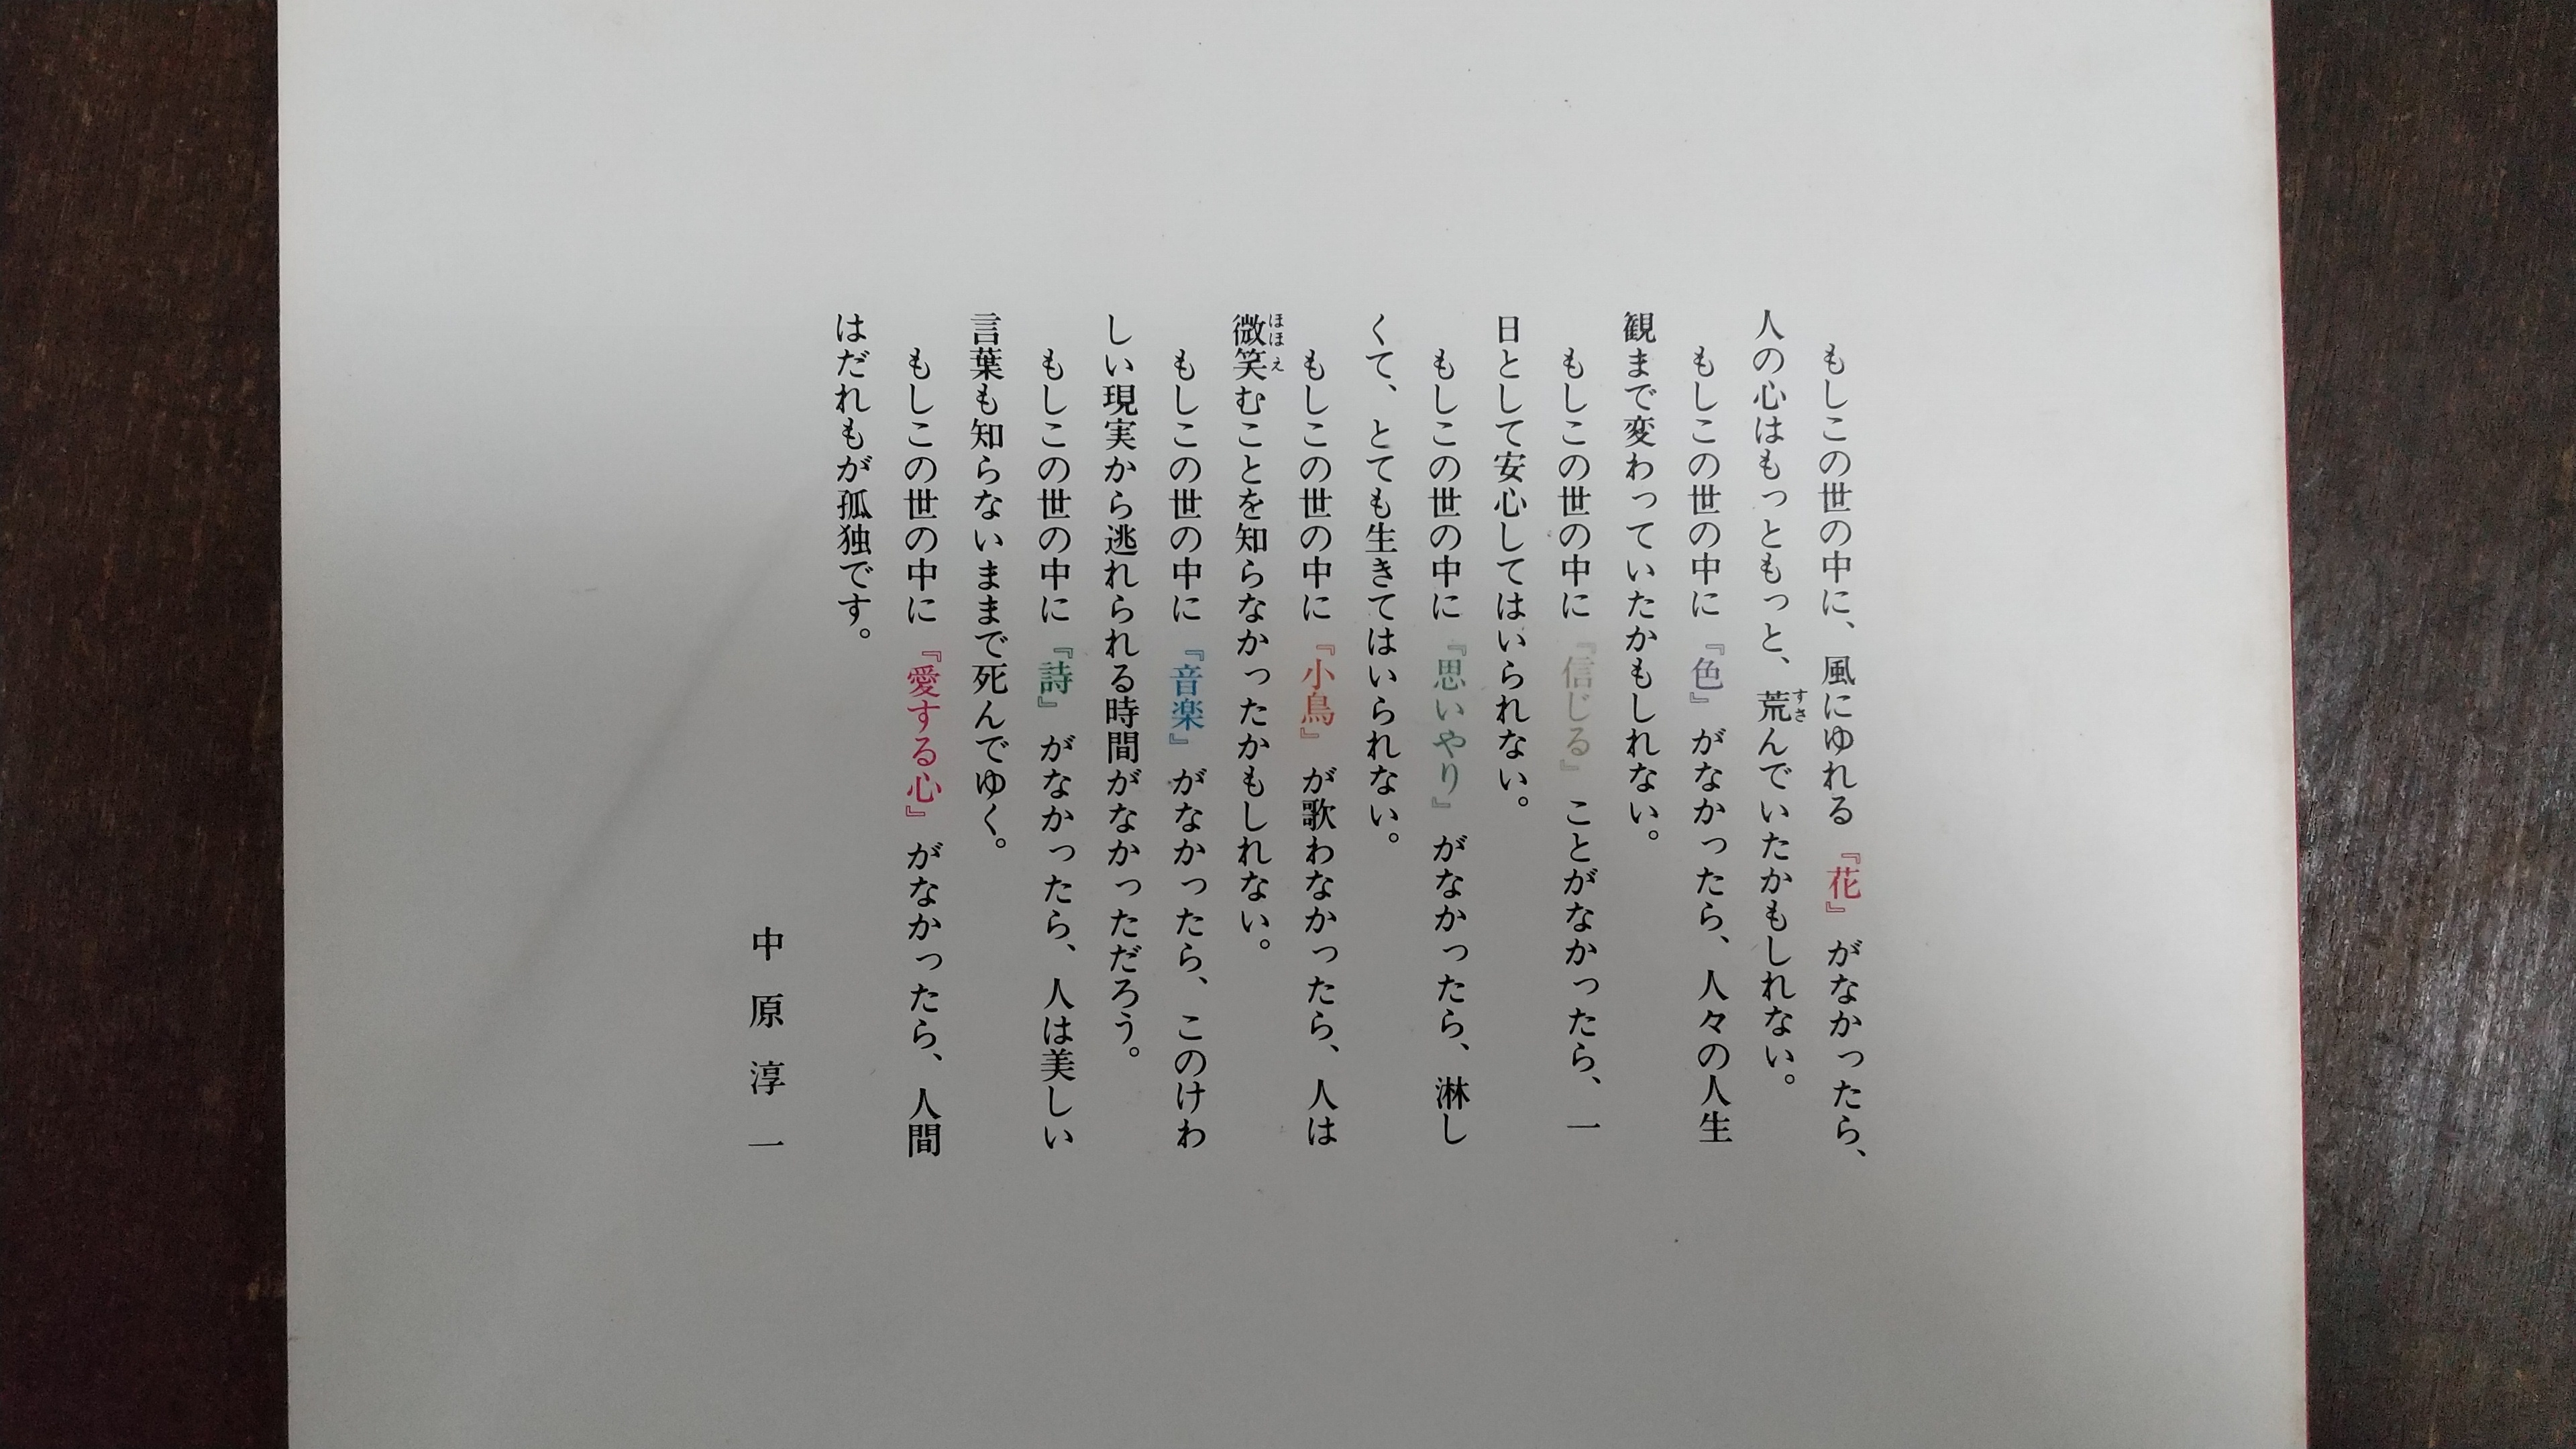 もしこの世の中に、風にゆれる『花』がなかったら、
人の心はもっともっと、荒んでいたかもしれない。
もしこの世の中に『色』がなかったら、人々の人生
観まで変わっていたかもしれない。
もしこの世の中に『信じる』ことがなかったら、一
日として安心してはいられない。
もしこの世の中に『思いやり』がなかったら、淋し
くて、とても生きてはいられない。
もしこの世の中に『小鳥』が歌わなかったら、人は
微笑むことを知らなかったかもしれない。
もしこの世の中に『音楽』がなかったら、このけわ
しい現実から逃れられる時間がなかっただろう。
もしこの世の中に『詩』がなかったら、人は美しい
言葉も知らないままで死んでゆく。
もしこの世の中に『愛する心』がなかったら、人間
はだれもが孤独です。
中原淳一